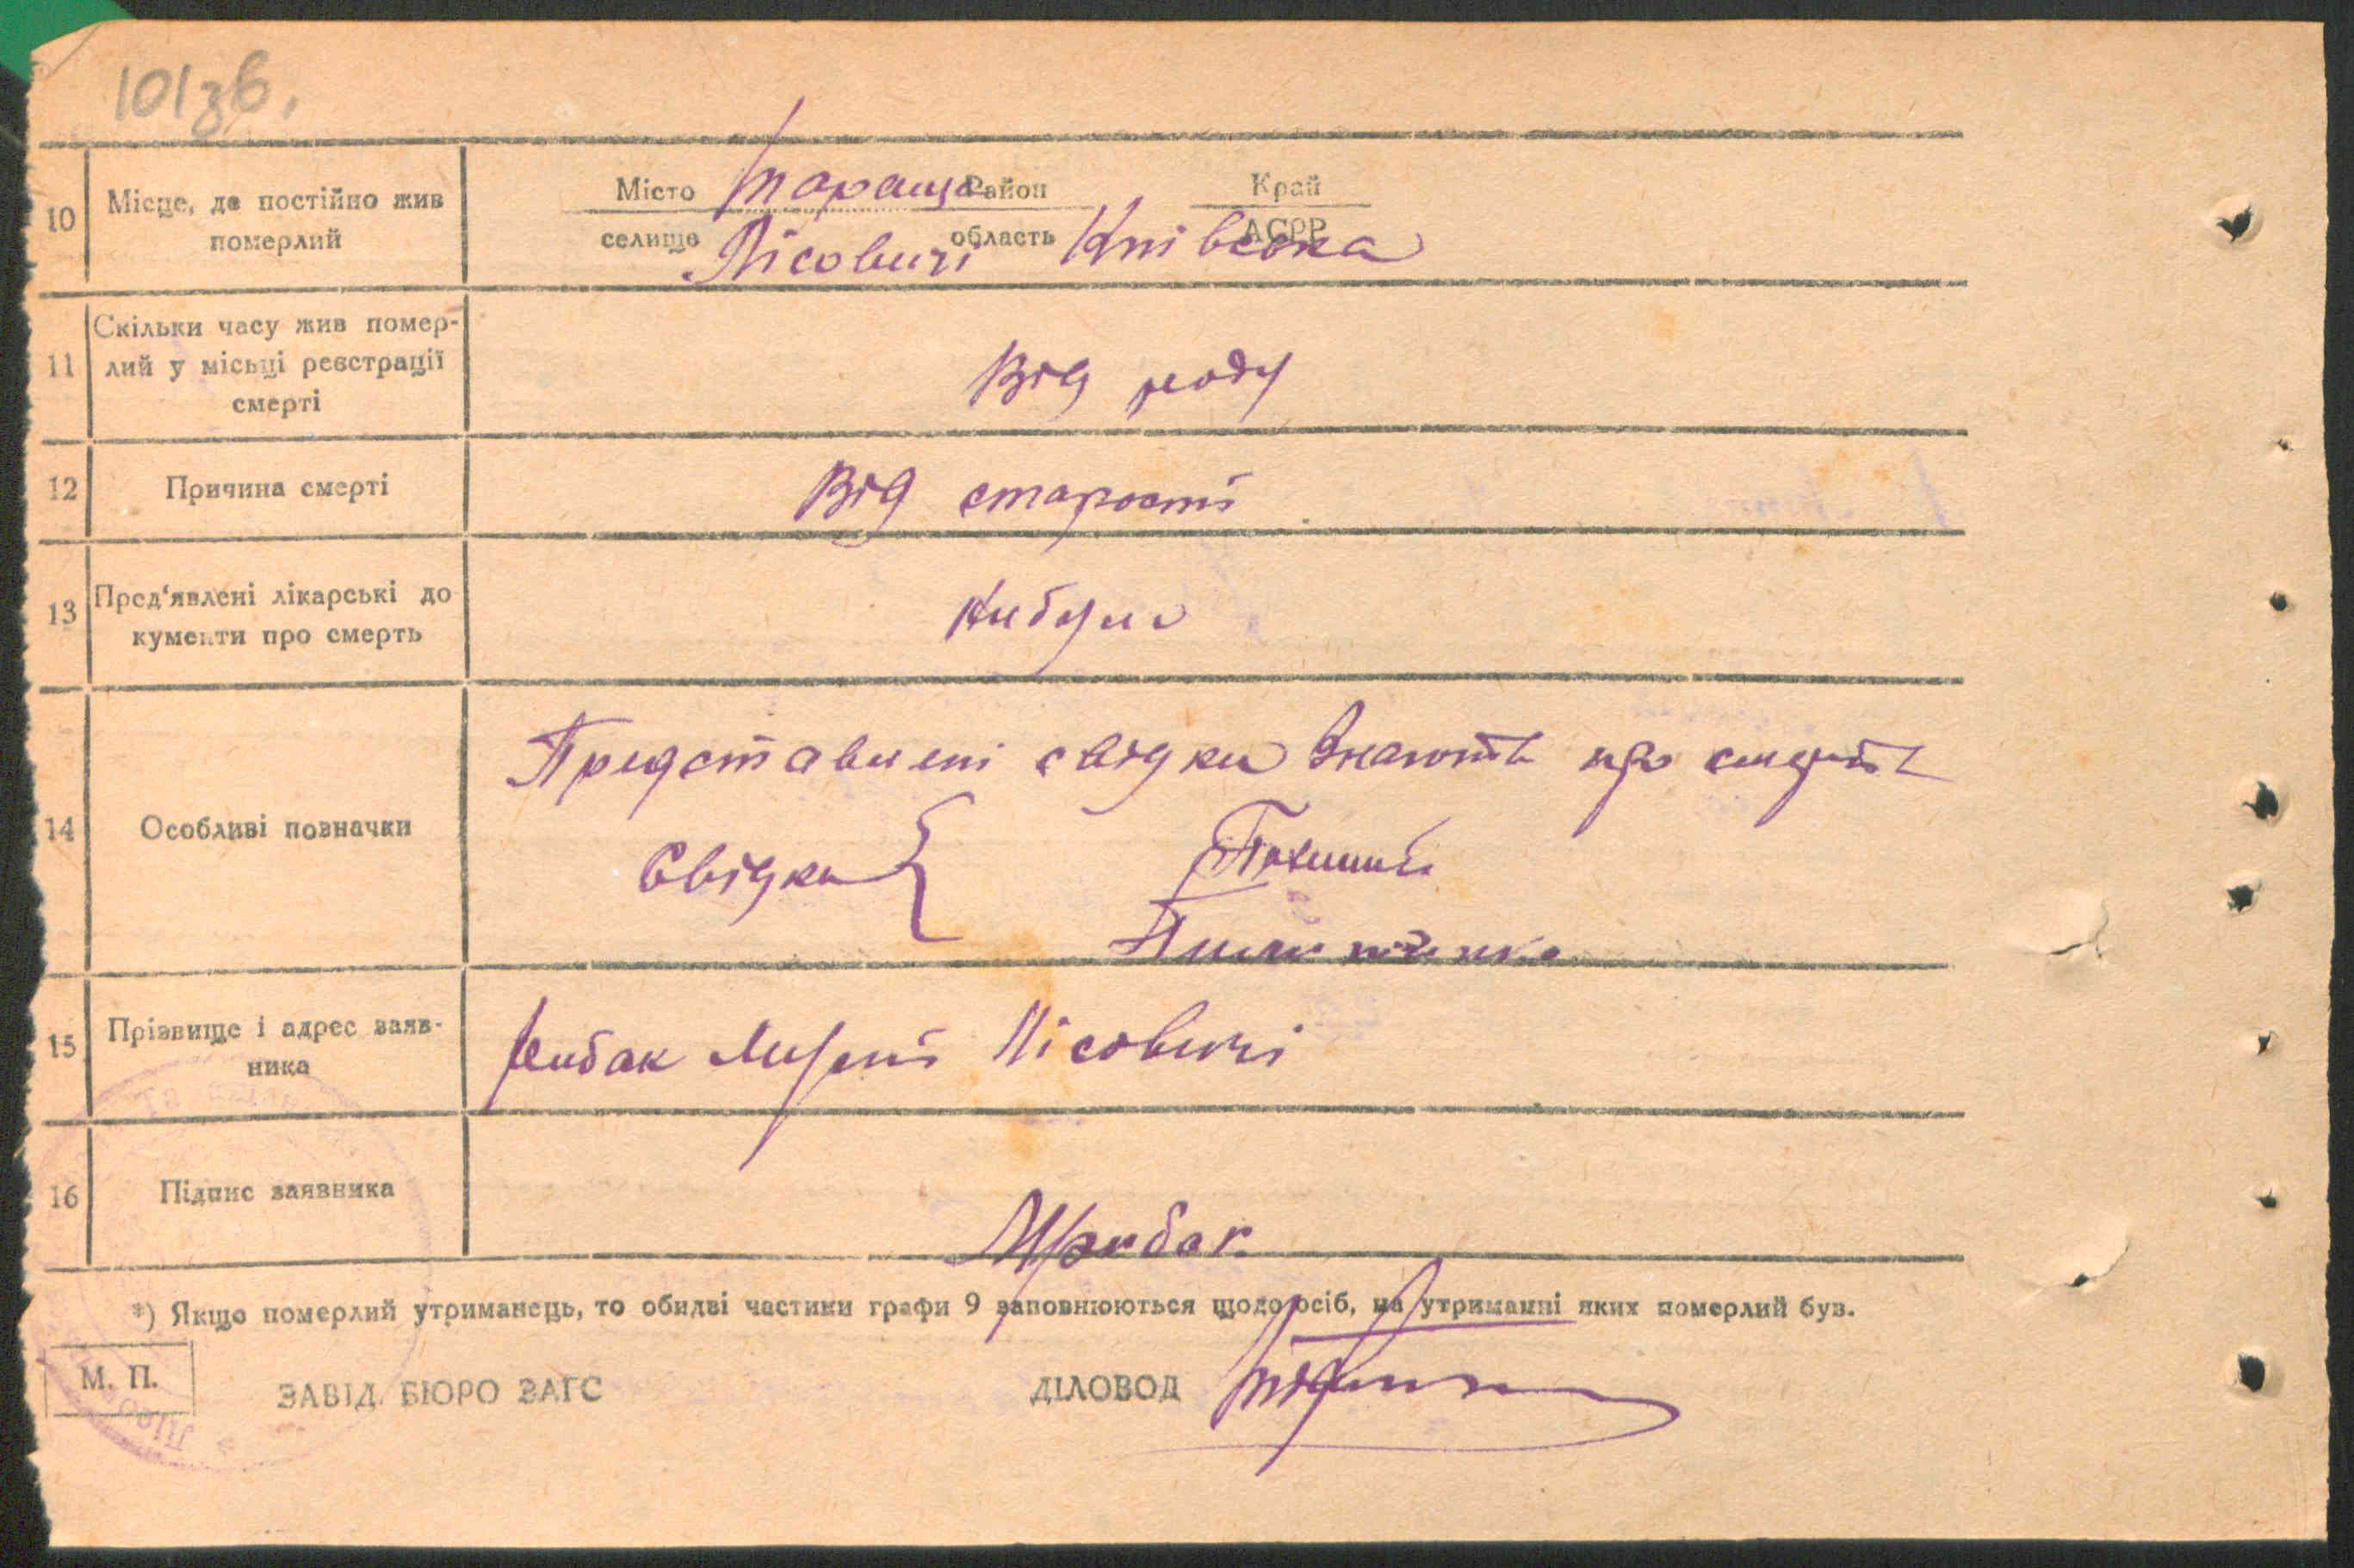 101зв.
10
Місце, де постійно жив
померлий
Місто Тараща Район Край
селище Лісовичі область Київська АСРР
11
Скільки часу жив помер-
лий у місьці реєстрації
смерті
Від роду
12
Причина смерті
Від старости
13
Пред'явлені лікарські до
кументи про смерть
Небуло
14
Особливі позначки
Представлені свідки знають про смерть
Свідки {
15
Прізвище і адрес заяв-
ника
Рибак Лісовичі
16
Підпис заявника
Рибак
*) Якщо померлий утриманець, то обидві частини графи 9 заповнюються щодо осіб, на утриманні яких померлий був.
М. П.
ЗАВІД. БЮРО ЗАГС
ДІЛОВОД